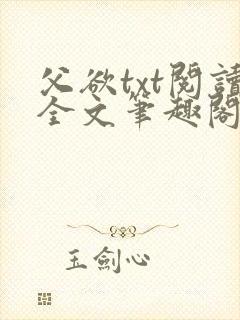 父欲txt閱讀
全文筆趣閣
玉劍心